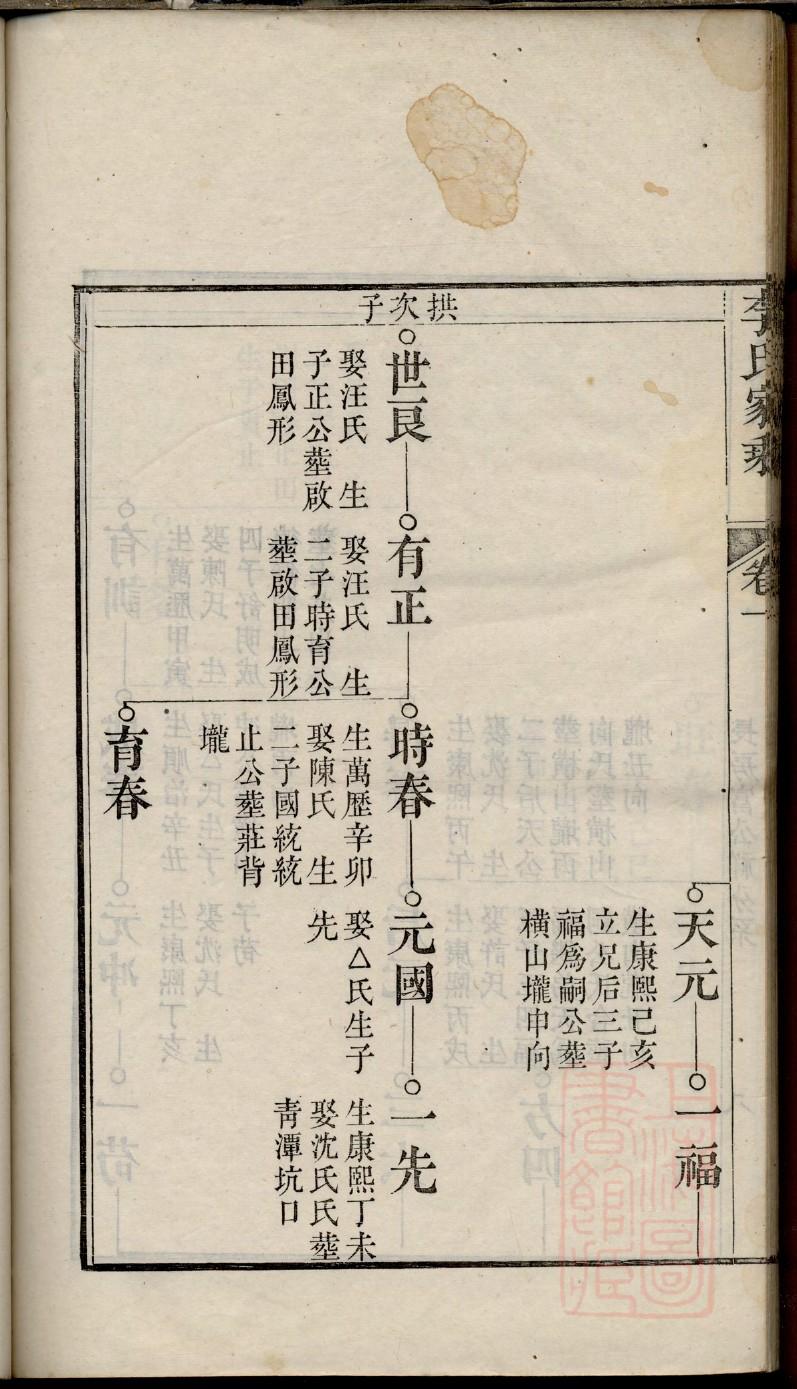 李氏家乘
卷一
天元
生康熙己亥
立兄后三子
福爲嗣公塟
横山壠申向
一福
拱次子
世良
娶汪氏　生
子正公塟啟
田鳳形
有正
娶汪氏　生
二子時育公
塟啟田鳳形
時春
生萬歷辛卯
娶陳氏　生
二子國統統
止公塟莊背
壠
元國
娶△氏生子
先
一先
生康熙丁未
娶沈氏氏塟
靑潭坑口
育春